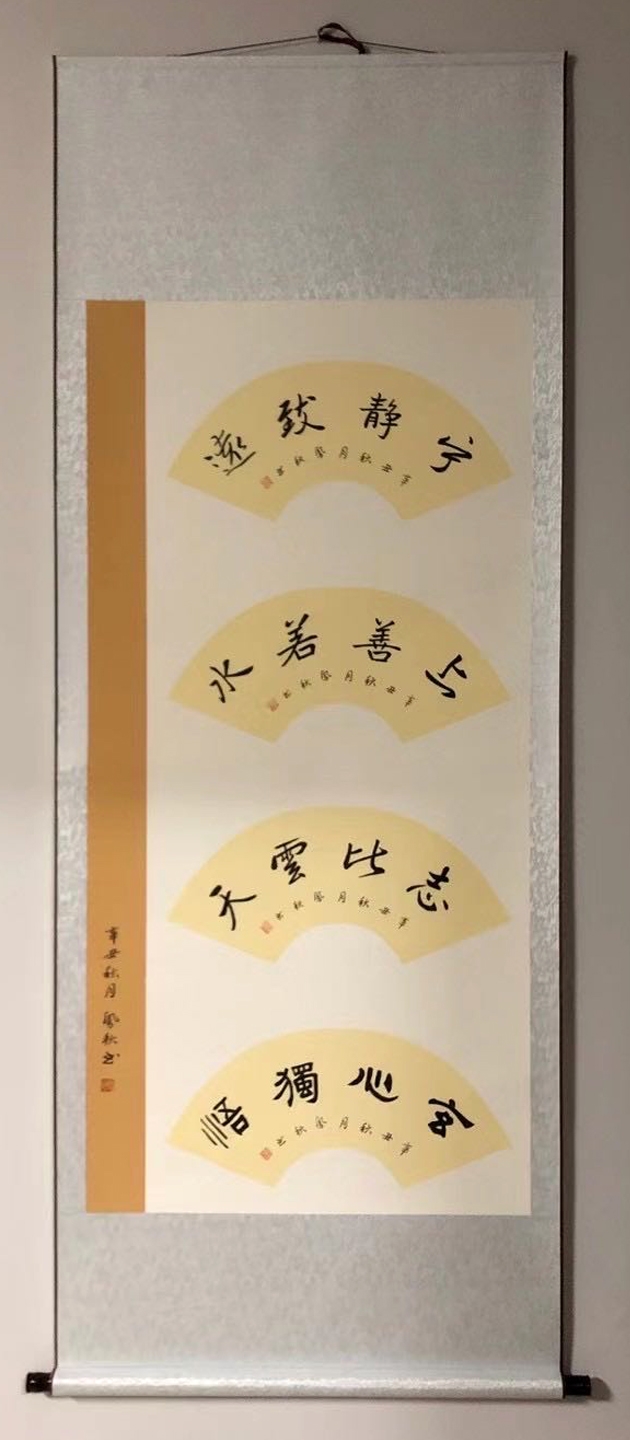 宁静致遠
辛丑秋月鳳秋书
上善若水
辛丑秋月鳳秋书
志比雲天
辛丑秋月鳳秋书
玄心獨悟
辛丑秋月鳳秋书
辛丑秋月鳳秋书